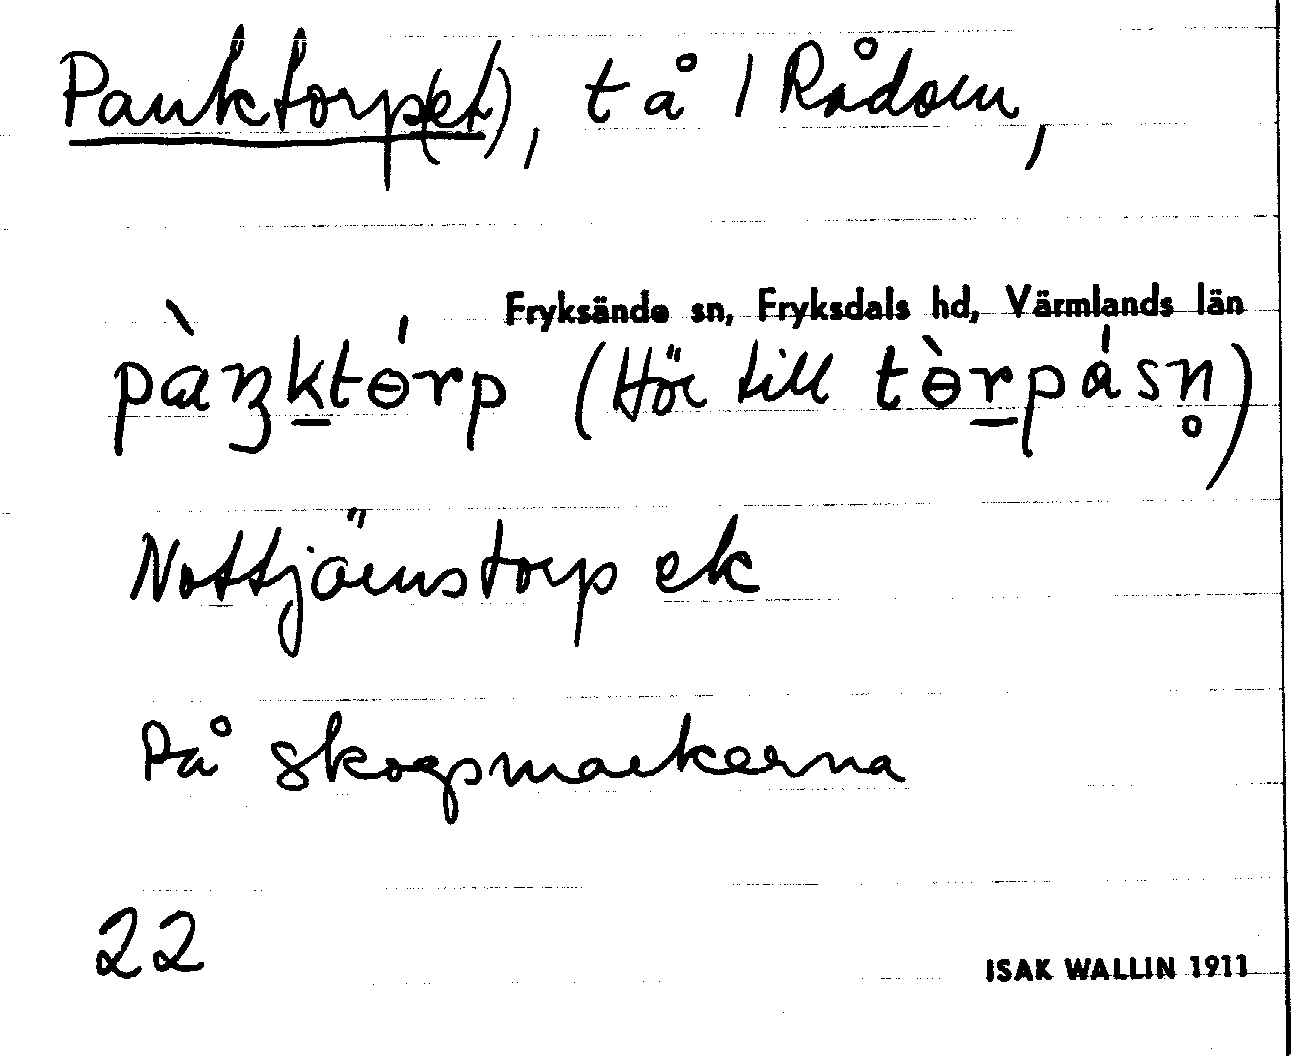 Panktorp(et), t å 1 Rådom,
Fryksände sn, Fryksdals hd, Värmlands län
pàŋktɵ́rp (Hör till tɵ̀rpásn̥)
Nottjärnstorp ek
På skogsmarkerna
22
ISAK WALLIN 1911